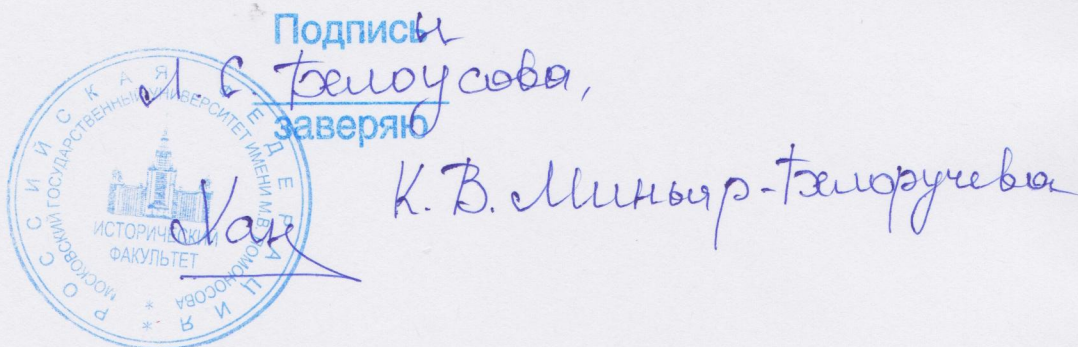 Подписи
Л. С. Белоусова,
заверяю
К. В. Миньяр-Белоручева
РОССИЙСКАЯ ФЕДЕРАЦИЯ
МОСКОВСКИЙ ГОСУДАРСТВЕННЫЙ УНИВЕРСИТЕТ ИМЕНИ М.В. ЛОМОНОСОВА
ИСТОРИЧЕСКИЙ
ФАКУЛЬТЕТ